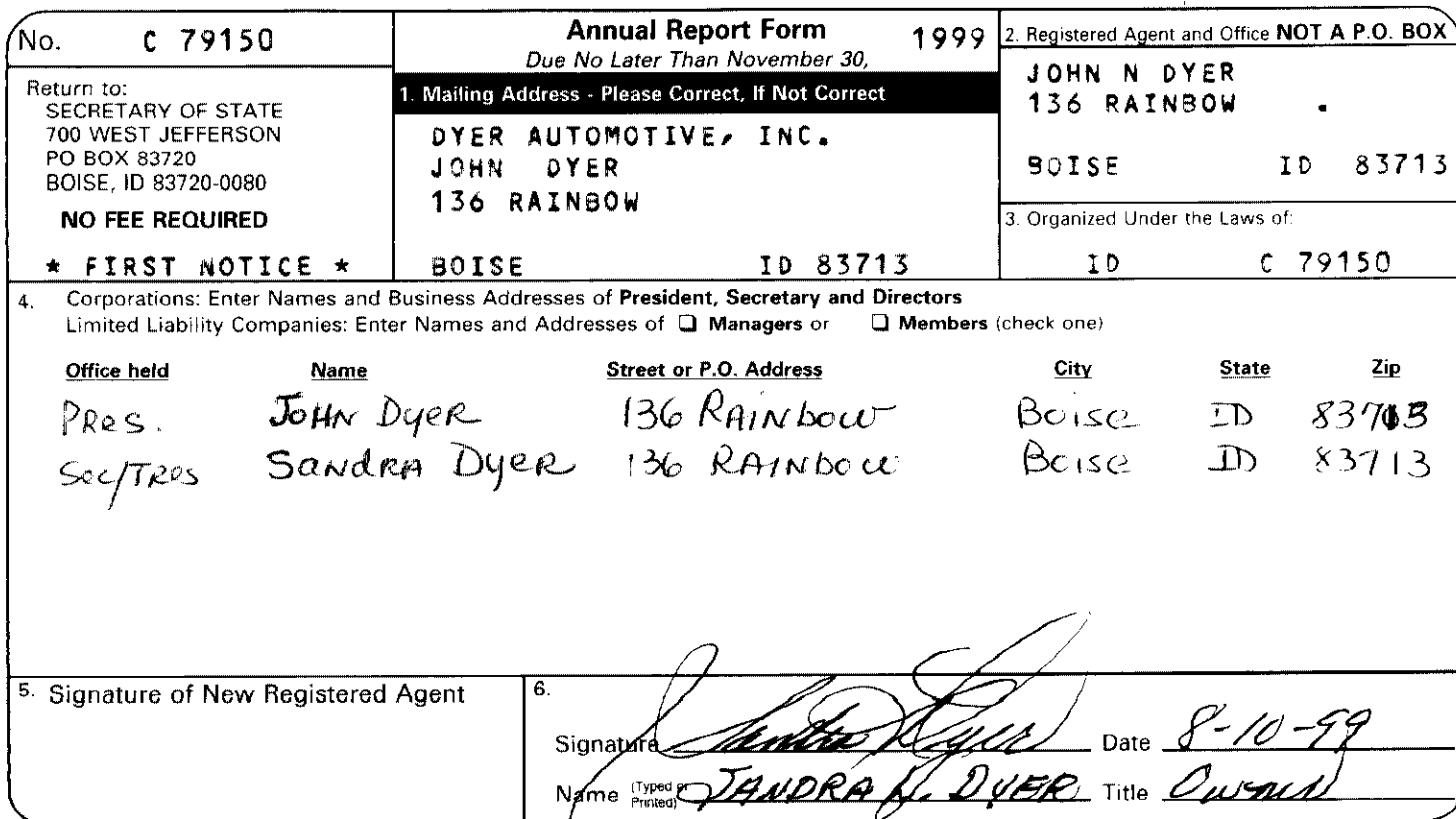 No. C 79150
Return to:
SECRETARY OF STATE
700 WEST JEFFERSON
PO BOX 83720
BOISE, ID 83720-0080
NO FEE REQUIRED
* FIRST NOTICE *
Annual Report Form 1999
Due No Later Than November 30,
1. Mailing Address - Please Correct, If Not Correct
DYER AUTOMOTIVE, INC.
JOHN DYER
136 RAINBOW
BOISE ID 83713
2. Registered Agent and Office NOT A P.O. BOX
JOHN N DYER
136 RAINBOW
BOISE ID 83713
3. Organized Under the Laws of:
ID C 79150
4. Corporations: Enter Names and Business Addresses of President, Secretary and Directors
Limited Liability Companies: Enter Names and Addresses of ❏ Managers or ❏ Members (check one)
Office held Name Street or P.O. Address City State Zip
PRes. JOHN DyeR 136 RAINbow Boise ID 83713
Sec/TRes SANDRA DyeR 136 RAINbow Boise ID 83713
5. Signature of New Registered Agent
6.
Signature Sandra Dyer Date 8-10-99
Name (Typed or Printed) SANDRA DYER Title Owner